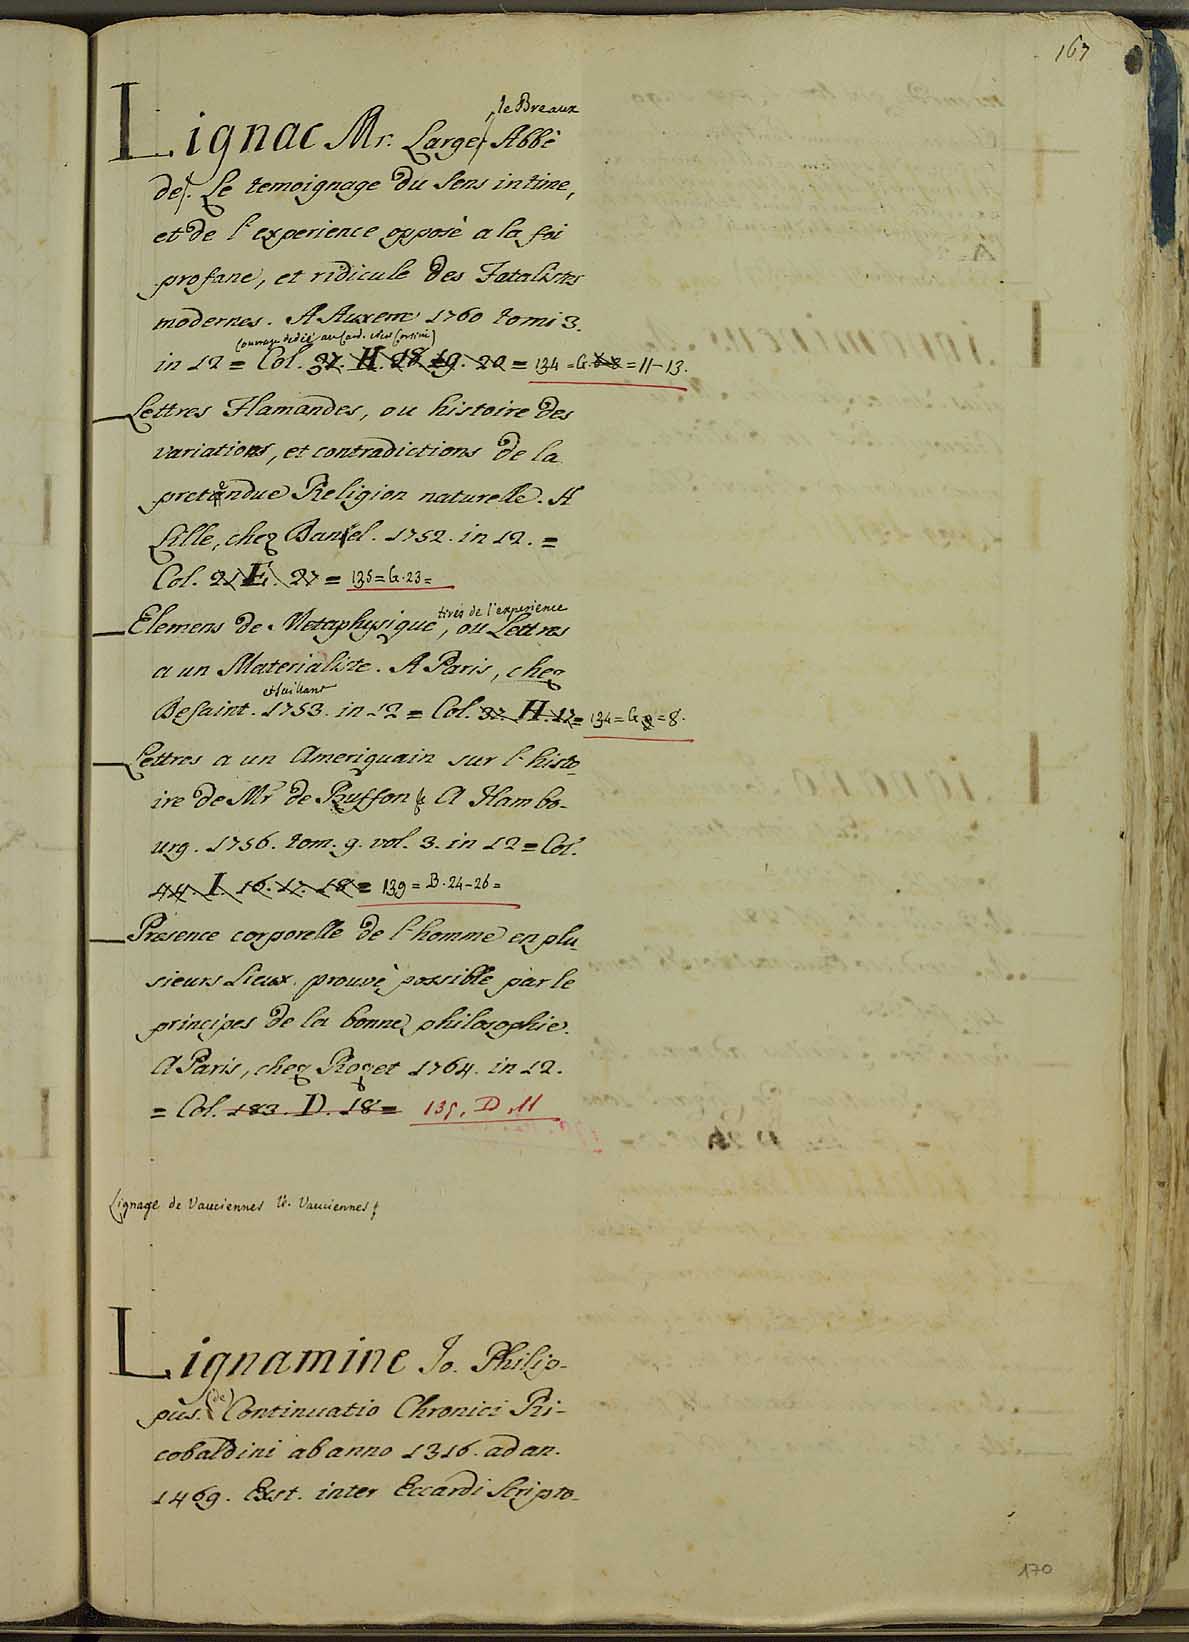 167
le Breaux
Lignac Mr. Large, Abbè
de. Le temoignage du Sens intime,
et de l'experience opposè a la foi
profane, et ridicule des Fatalistes
modernes. A Auxerre 1760 tomi 3.
(ouvrage dedié au Card. Corsini)
in 12 = Col. 37. H. 18 19. 20 = 134 = G. = 11-13.
Lettres Flamandes, ou histoire des
variations, et contradictions de la
pretendue Religion naturelle. A
Lille, chez Daniel. 1752. in 12. =
Col. 21 E. 27 = 135 = G. 23 =
tirés de l'experience
Elemens de Metaphysique, ou Lettres
a un Materialiste. A Paris, chez
et Saillant
Desaint. 1753. in 12 = Col. 37. H. 17 = 134 = G = 8.
Lettres a un Ameriquain sur l'histo-
ire de Mr de Buffon & A Hambo-
urg. 1756. tom. 9. vol. 3. in 12 = Col.
44. I. 16. 17. 18 = 139 = B. 24-26 =
Presence corporelle de l'homme en plu
sieurs Lieux prouvè possible par le
principes de la bonne philosophie.
A Paris, chez Roget 1764. in 12.
= Col. 183. D. 18 = 135. D. 11
Lignage de Vauciennes V. Vauciennes
Lignamine Jo. Philip-
pus (de) Continuatio Chronici Ri-
cobaldini ab anno 1316. ad an.
1469. Exst. inter Eccardi Scripto-
170